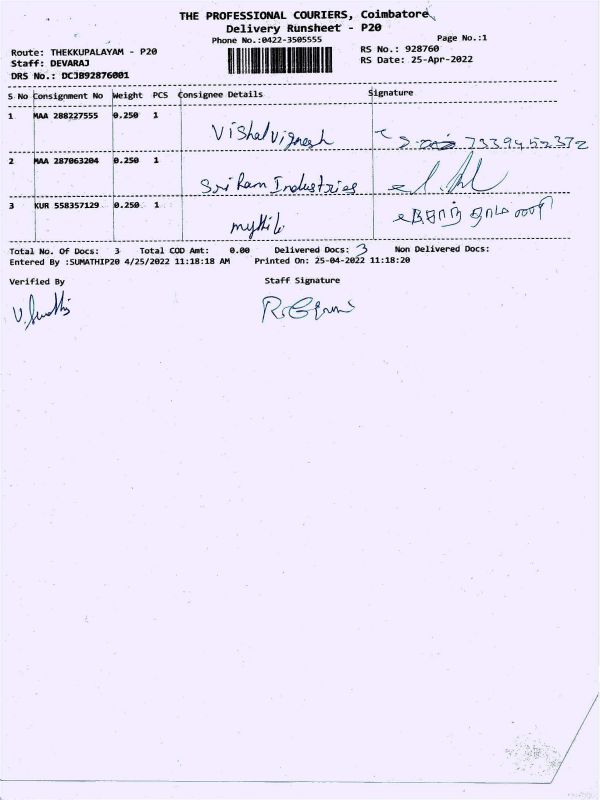 THE PROFESSIONAL COURIERS, Coimbatore
Delivery Runsheet - P20
Phone No.:0422-3505555
Page No.:1
Route: THEKKUPALAYAM - P20
RS No.: 928760
Staff: DEVARAJ
RS Date: 25-Apr-2022
DRS No.: DCJB92876001
S No Consignment No Weight PCS Consignee Details Signature
1 MAA 288227555 0.250 1
Vishal Vignesh
2 MAA 287063204 0.250 1
Sri Ram Industries
3 KUR 558357129 0.250 1
mythili
Total No. Of Docs: 3 Total COD Amt: 0.00 Delivered Docs: 3 Non Delivered Docs:
Entered By :SUMATHIP20 4/25/2022 11:18:18 AM Printed On: 25-04-2022 11:18:20
Verified By Staff Signature
V. Sumathi